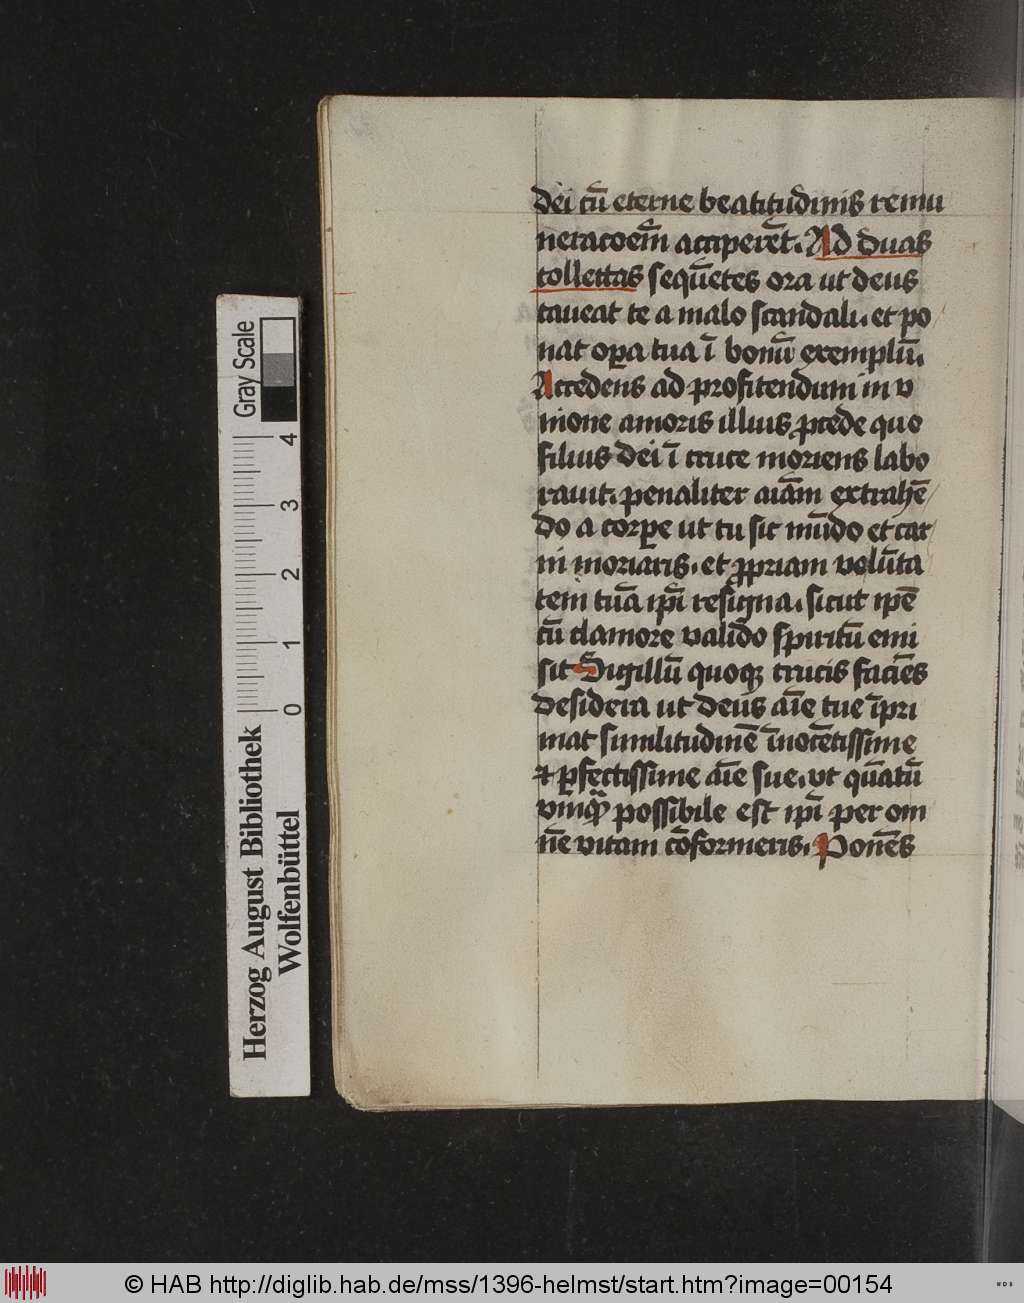 dei cū eterne beatitudinis remu
neracoem̄ acciperēt. Ad duas
collectas sequētes ora ut deus
caueat te a malo scandali. et po
nat opa tua ī bonū exemplū.
Accedens ad profitendum in v
nione amoris illius pcede quo
filius dei ī cruce moriens labo
rauit. penaliter aiām extrahē
do a corpe ut tu sic mūdo et car
ni moriaris. et ppriam volūta
tem tuā ipī resigna. sicut ipē
cū clamore valido spiritū emi
sit Sigillū quoqꝫ crucis faciēs
desidera ut deus aīe tue īpri
mat similitudinē īnocētissime
⁊ pfectissime aīe sue. vt quātū
vmqᷓ possibile est ipī per om
nē vitam cōformeris. Ponēs
Gray Scale
4
3
2
1
0
Herzog August Bibliothek
Wolfenbüttel
© HAB http://diglib.hab.de/mss/1396-helmst/start.htm?image=00154
WDB